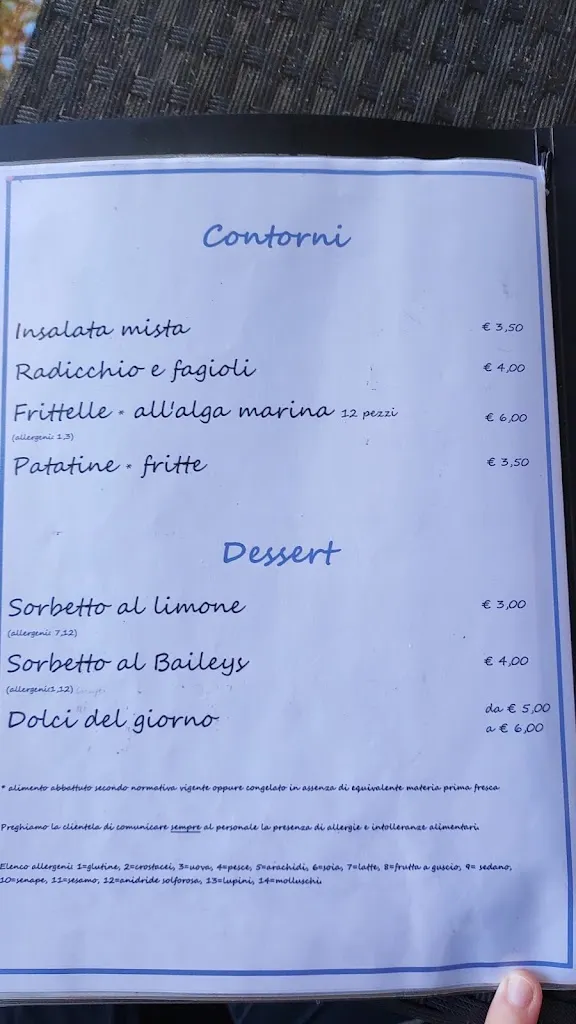 Contorni
Insalata mista € 3,50
Radicchio e fagioli € 4,00
Frittelle * all'alga marina 12 pezzi € 6,00
(allergeni: 1,3)
Patatine * fritte € 3,50
Dessert
Sorbetto al limone € 3,00
(allergeni: 7,12)
Sorbetto al Baileys € 4,00
(allergeni:1,12)
Dolci del giorno da € 5,00
a € 6,00
* alimento abbattuto secondo normativa vigente oppure congelato in assenza di equivalente materia prima fresca
Preghiamo la clientela di comunicare sempre al personale la presenza di allergie e intolleranze alimentari.
Elenco allergeni: 1=glutine, 2=crostacei, 3=uova, 4=pesce, 5=arachidi, 6=soia, 7=latte, 8=frutta a guscio, 9= sedano,
10=senape, 11=sesamo, 12=anidride solforosa, 13=lupini, 14=molluschi.